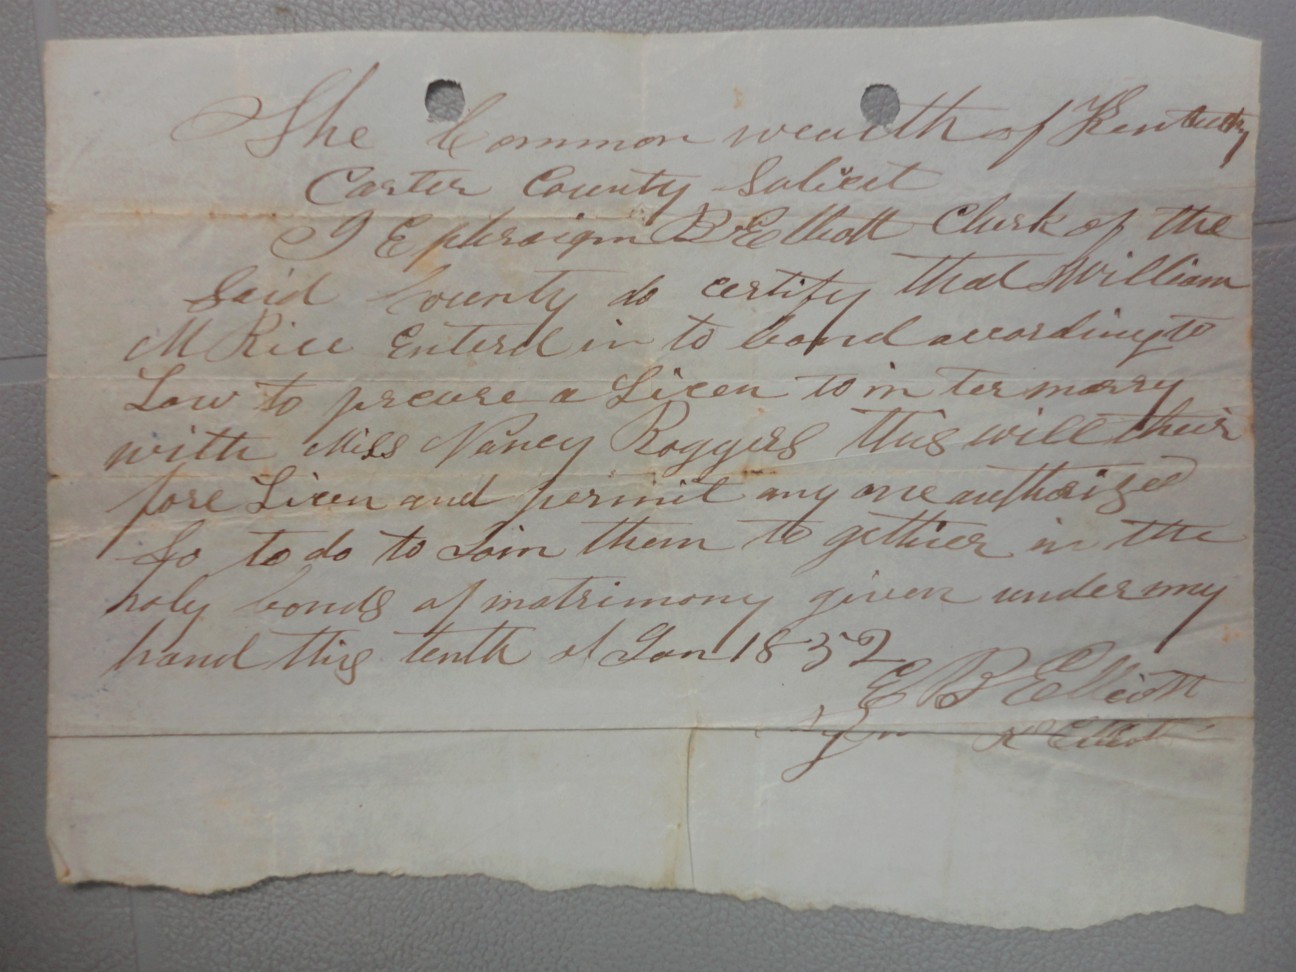 The Common wealth of Kentucky
Carter County Sulicet
I Ephraigm B Elliott Clerk of the
said County do certify that William
M Rice Enterd in to bond according to
Law to precure a Licen to in ter marry
with Miss Nancy Roggers this will their
fore Licen and permit any one authorized
so to do to Join them to gether in the
holy bonds of matrimony given under my
hand this tenth of Jan 1852
E B Elliott
Elliott